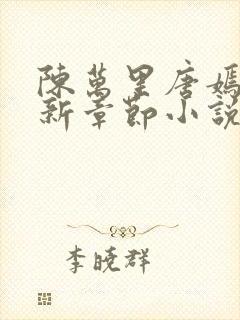 陳萬里唐嫣
新章節小說
李曉群